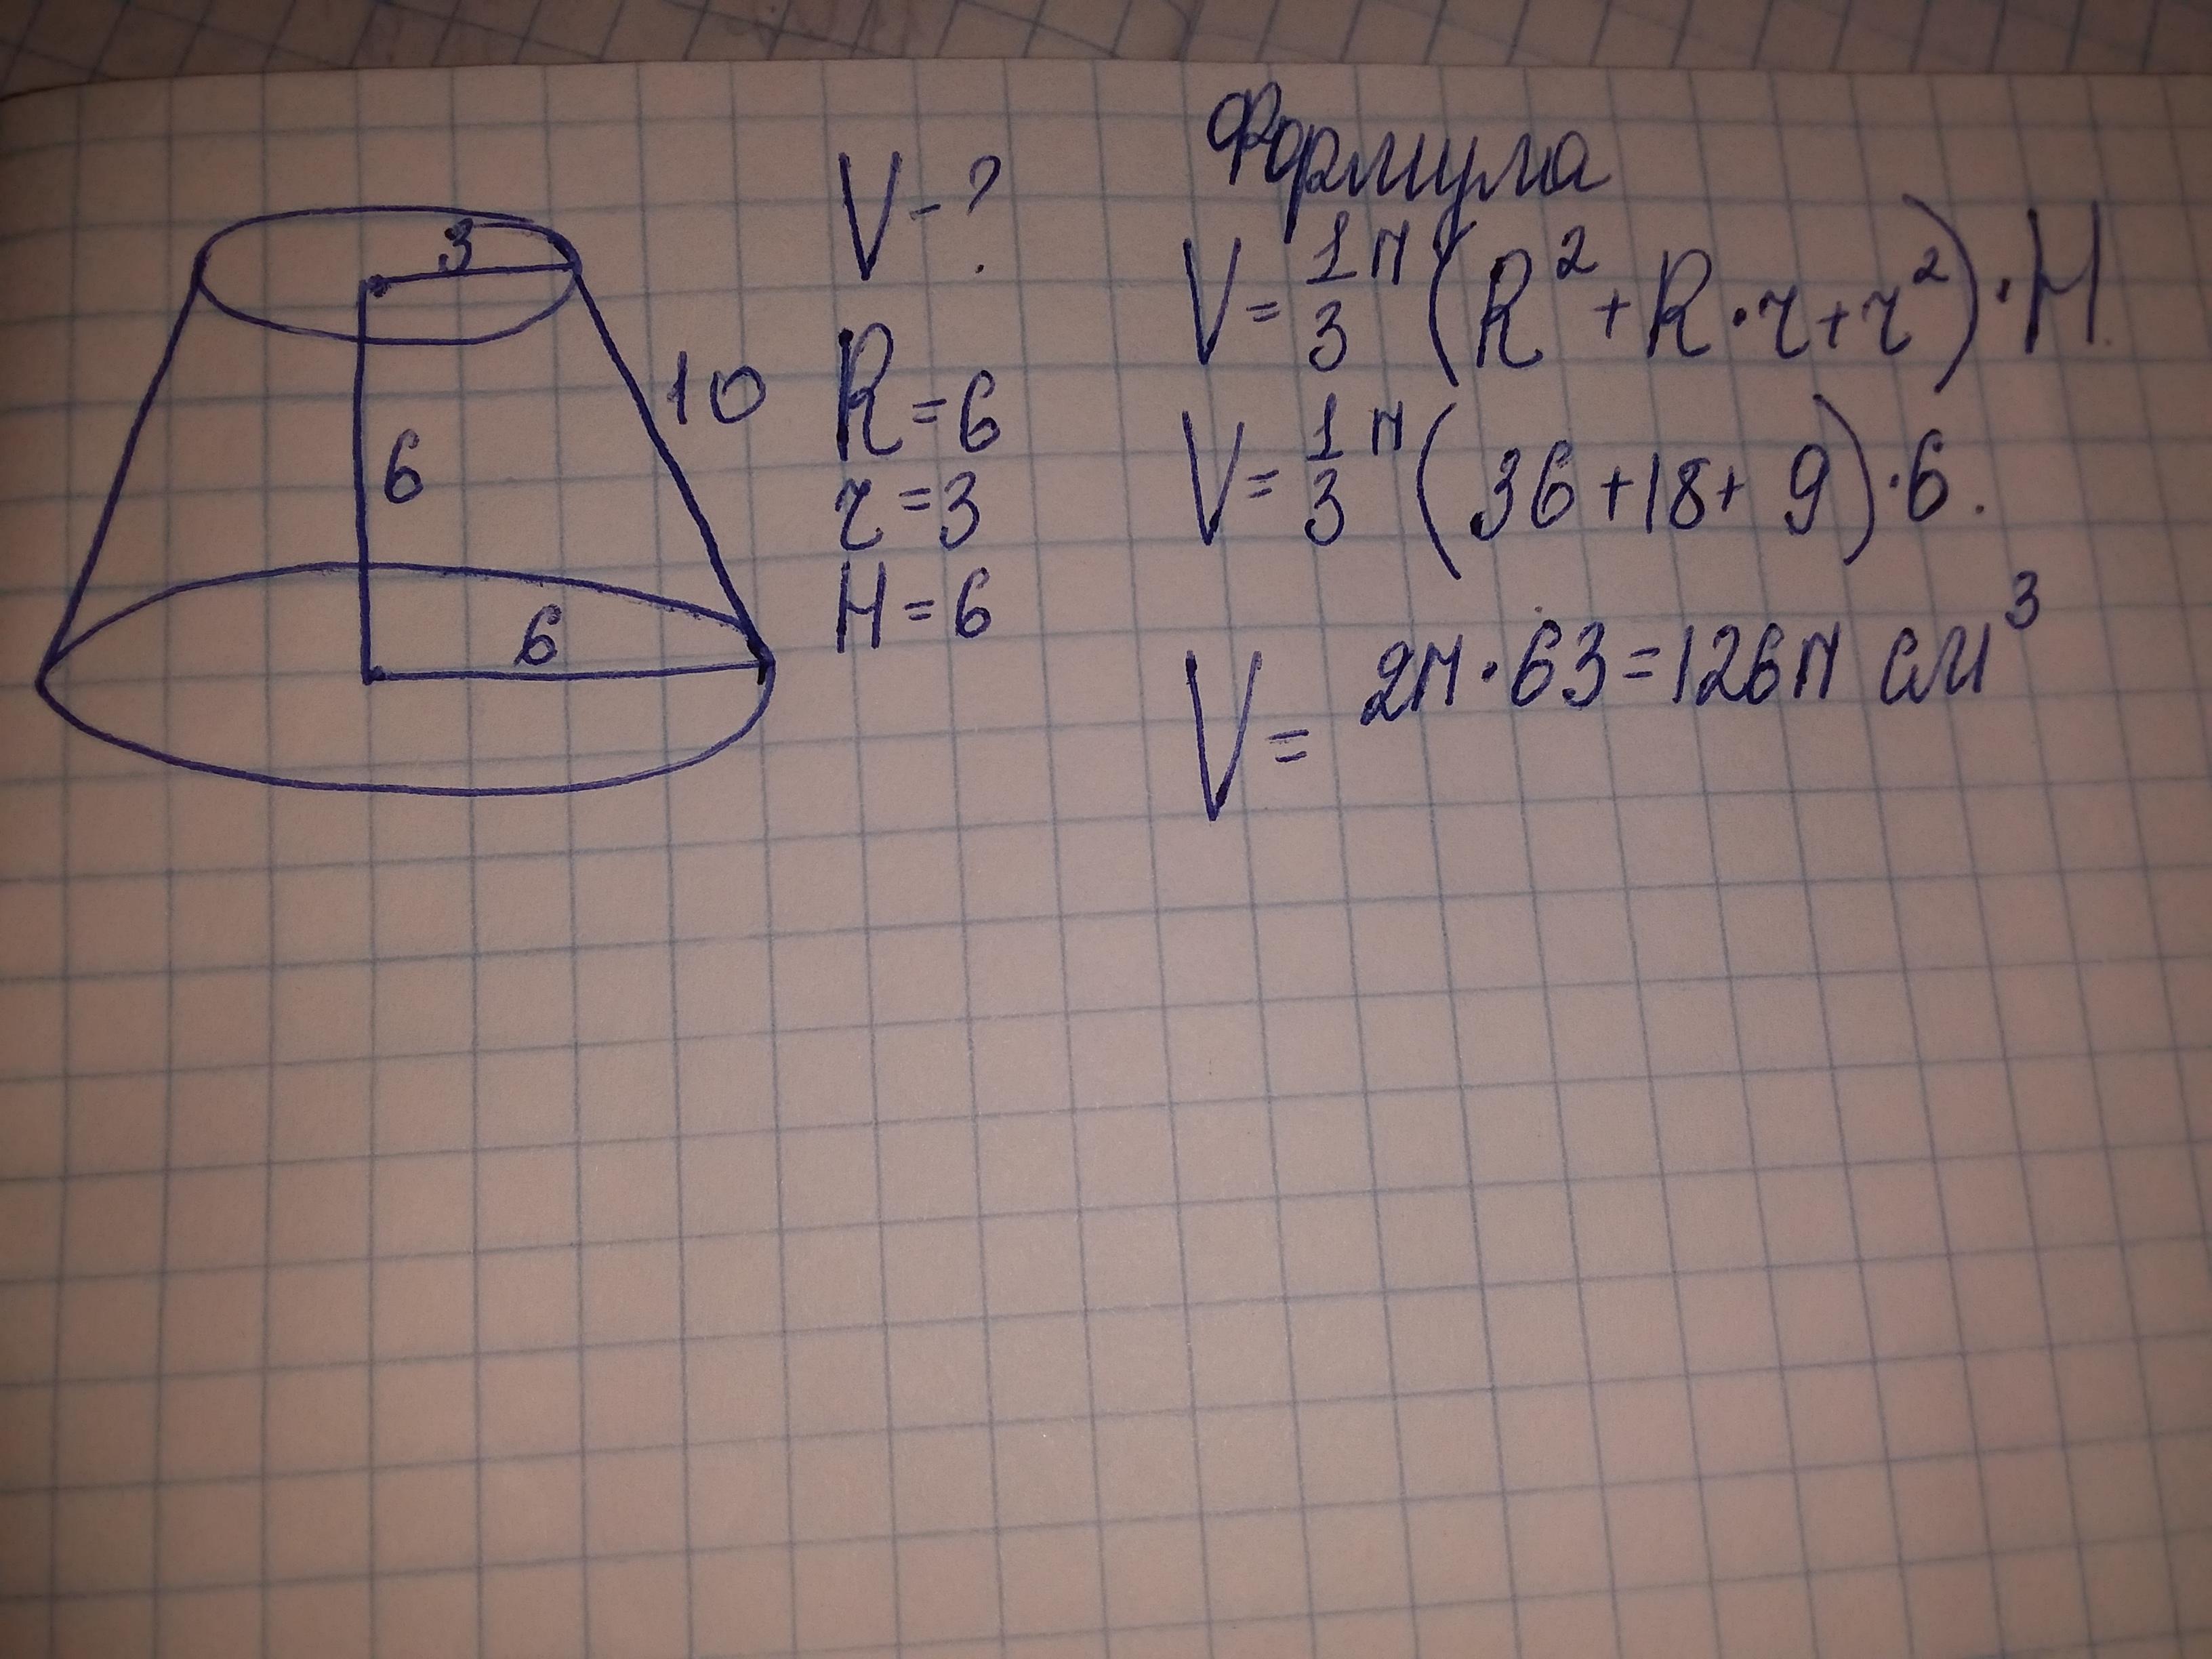 3
10
6
6
V - ?
R = 6
r = 3
H = 6
Формула
V = 1/3 π (R² + R · r + r²) · H.
V = 1/3 π (36 + 18 + 9) · 6.
V = 2π · 63 = 126π см³